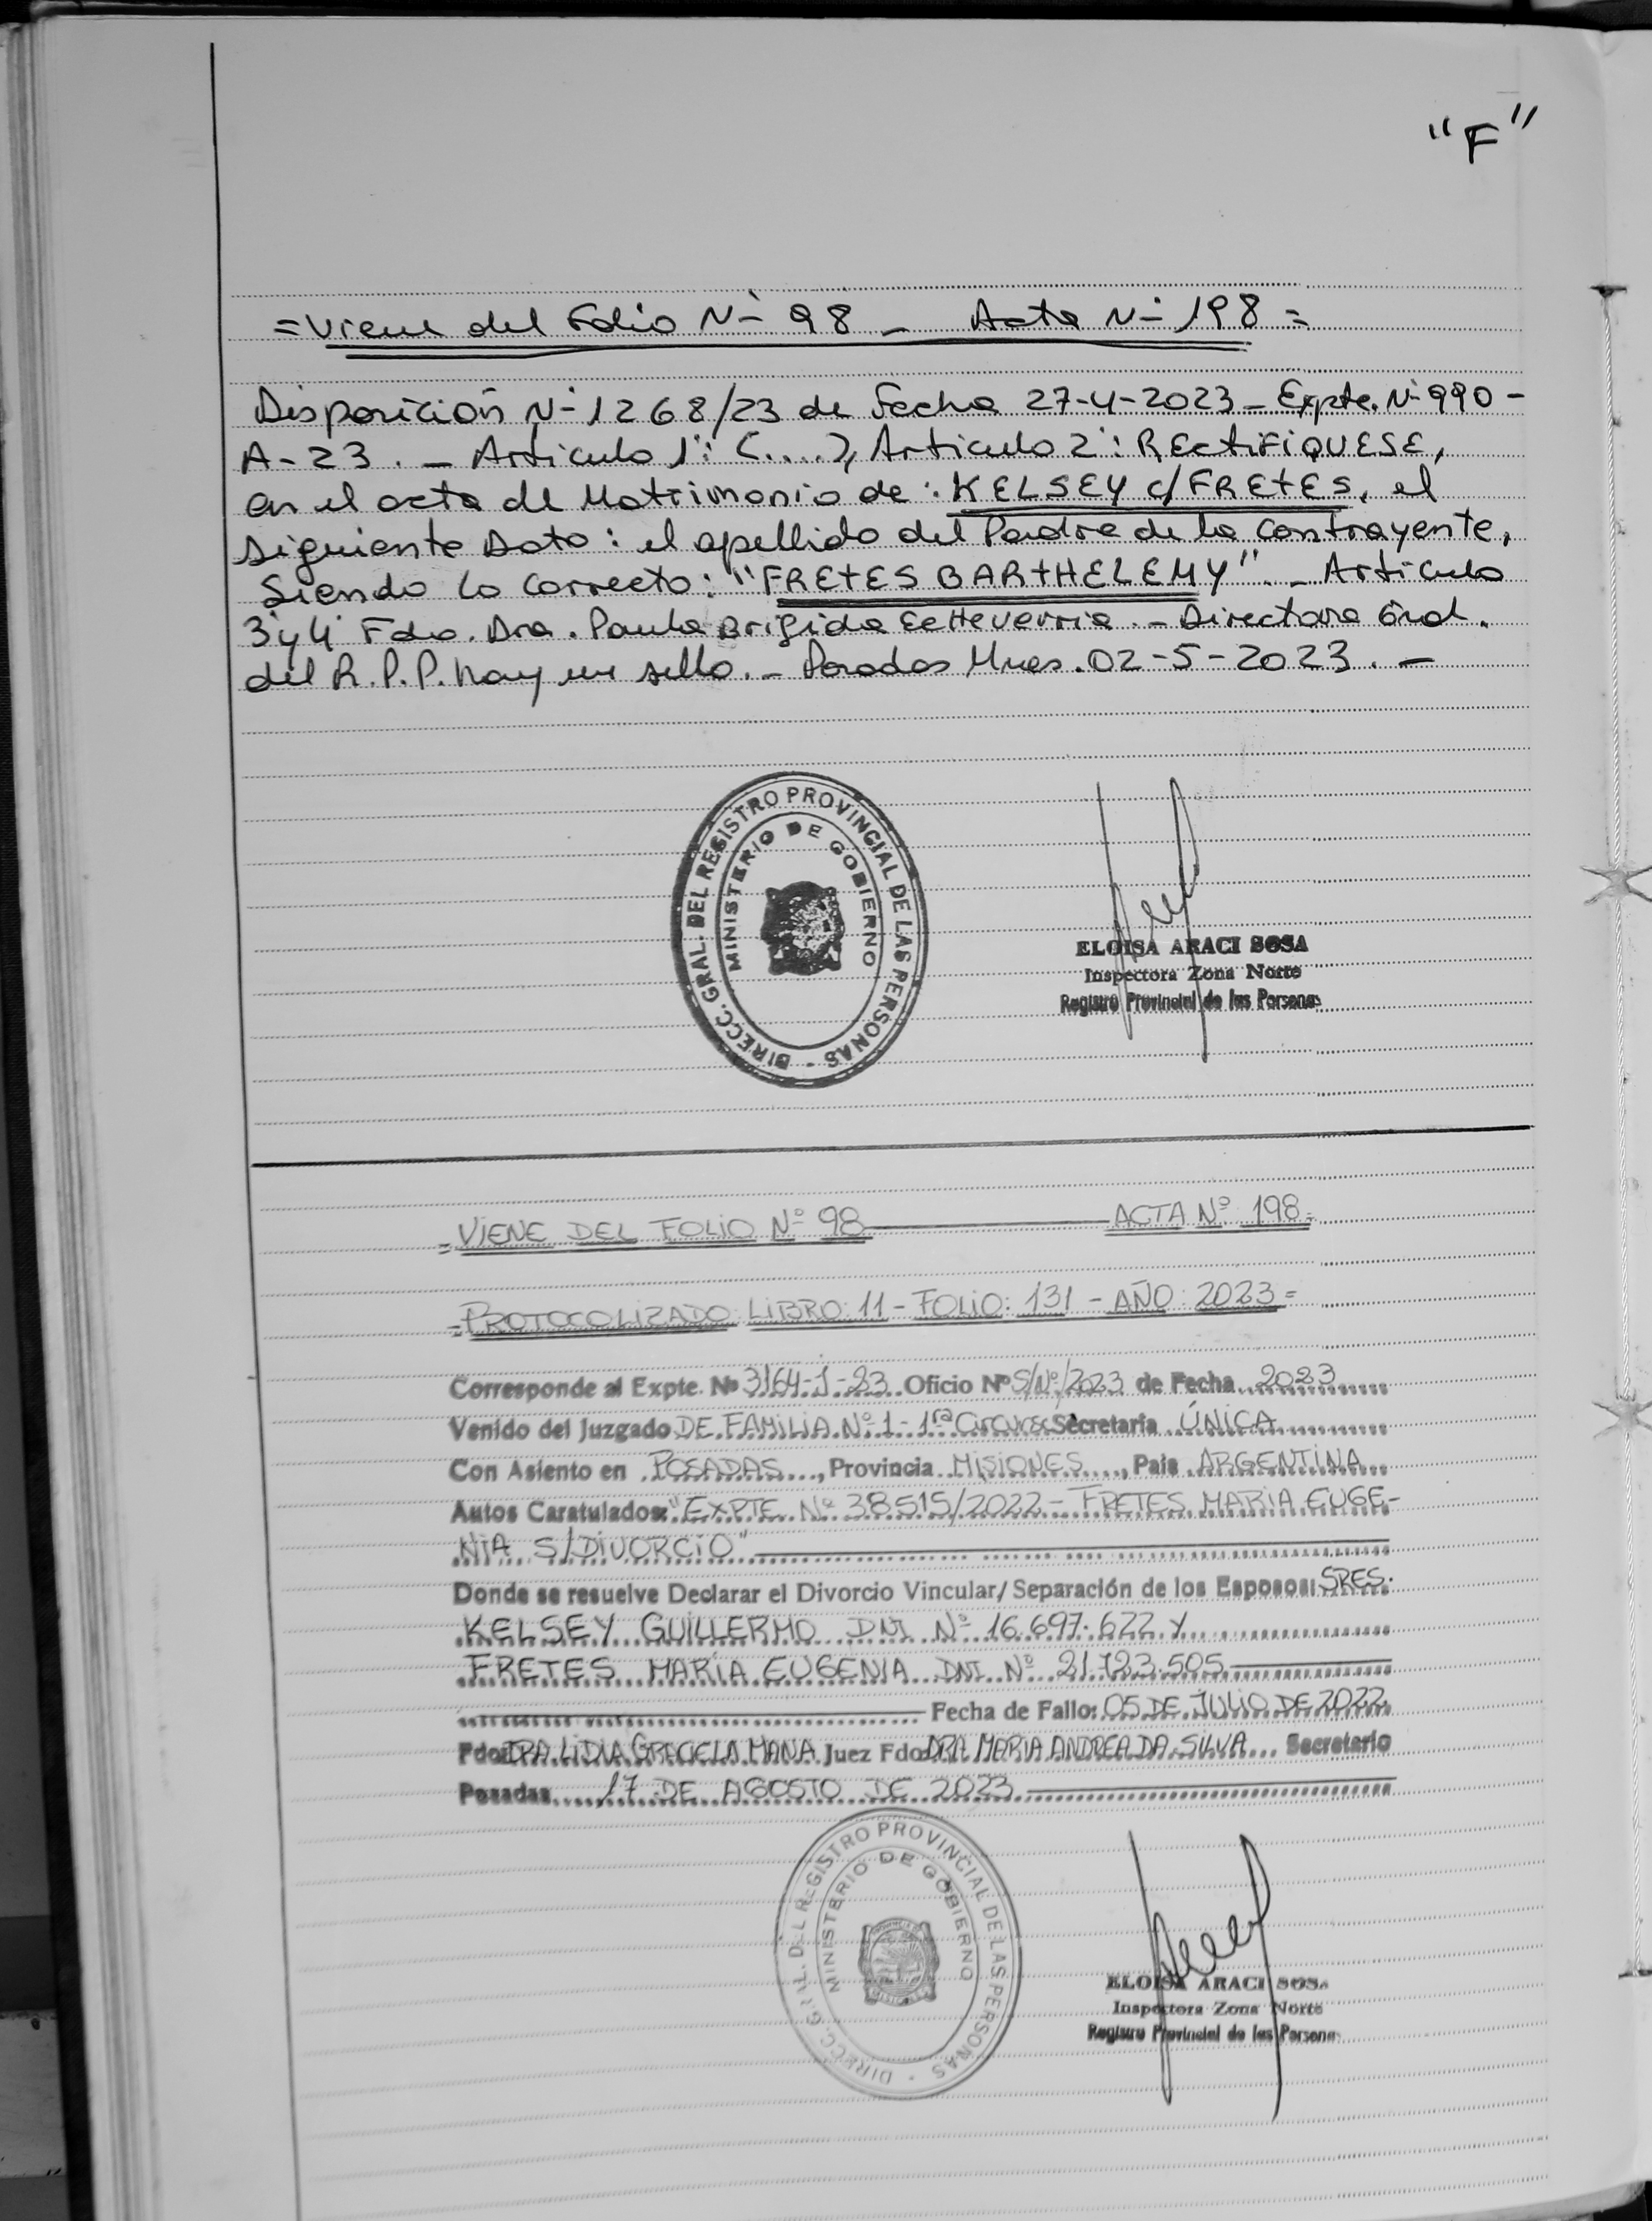 "F"
= Viene del Folio Nº 98 - Acta Nº 198 =
Disposición Nº 1268/23 de Fecha 27-4-2023 - Expte. Nº 990-
A-23. - Articulo 1º: (.....), Articulo 2º: RECTIFIQUESE,
en el acta de Matrimonio de: KELSEY c/ FRETES, el
siguiente Dato: el apellido del Padre de la contrayente,
Siendo lo correcto: "FRETES BARTHELEMY". - Articulo
3º y 4º Fdo. Dra. Paula Brigida Echeverria. - Directora Gral.
del R.P.P. hay un sello. - Posadas Mnes. 02-5-2023. -
DIRECC. GRAL. DEL REGISTRO PROVINCIAL DE LAS PERSONAS -
MINISTERIO DE GOBIERNO
ELOISA ARACI SOSA
Inspectora Zona Norte
Registro Provincial de las Personas
= VIENE DEL FOLIO Nº 98 ACTA Nº 198 =
= PROTOCOLIZADO LIBRO: 11 - FOLIO: 131 - AÑO: 2023 =
Corresponde al Expte. Nº 3164-J-23 Oficio Nº S/Nº/2023 de Fecha 2023
Venido del Juzgado DE FAMILIA Nº 1 - 1ra Circunsc Secretaría ÚNICA
Con Asiento en POSADAS, Provincia MISIONES, Pais ARGENTINA
Autos Caratulados: "EXPTE Nº 38515/2022 - FRETES MARIA EUGE-
NIA S/ DIVORCIO"
Donde se resuelve Declarar el Divorcio Vincular/ Separación de los Esposos: SRES.
KELSEY GUILLERMO DNI Nº 16.697.622 Y
FRETES MARÍA EUGENIA DNI Nº 21.723.505
Fecha de Fallo: 05 DE JULIO DE 2022
Fdo: DRA. LIDIA GRACIELA MANA Juez Fdo: DRA MARIA ANDREA DA SILVA Secretario
Posadas 17 DE AGOSTO DE 2023
DIRECC. GRAL. DEL REGISTRO PROVINCIAL DE LAS PERSONAS -
MINISTERIO DE GOBIERNO
ELOISA ARACI SOSA
Inspectora Zona Norte
Registro Provincial de las Persona